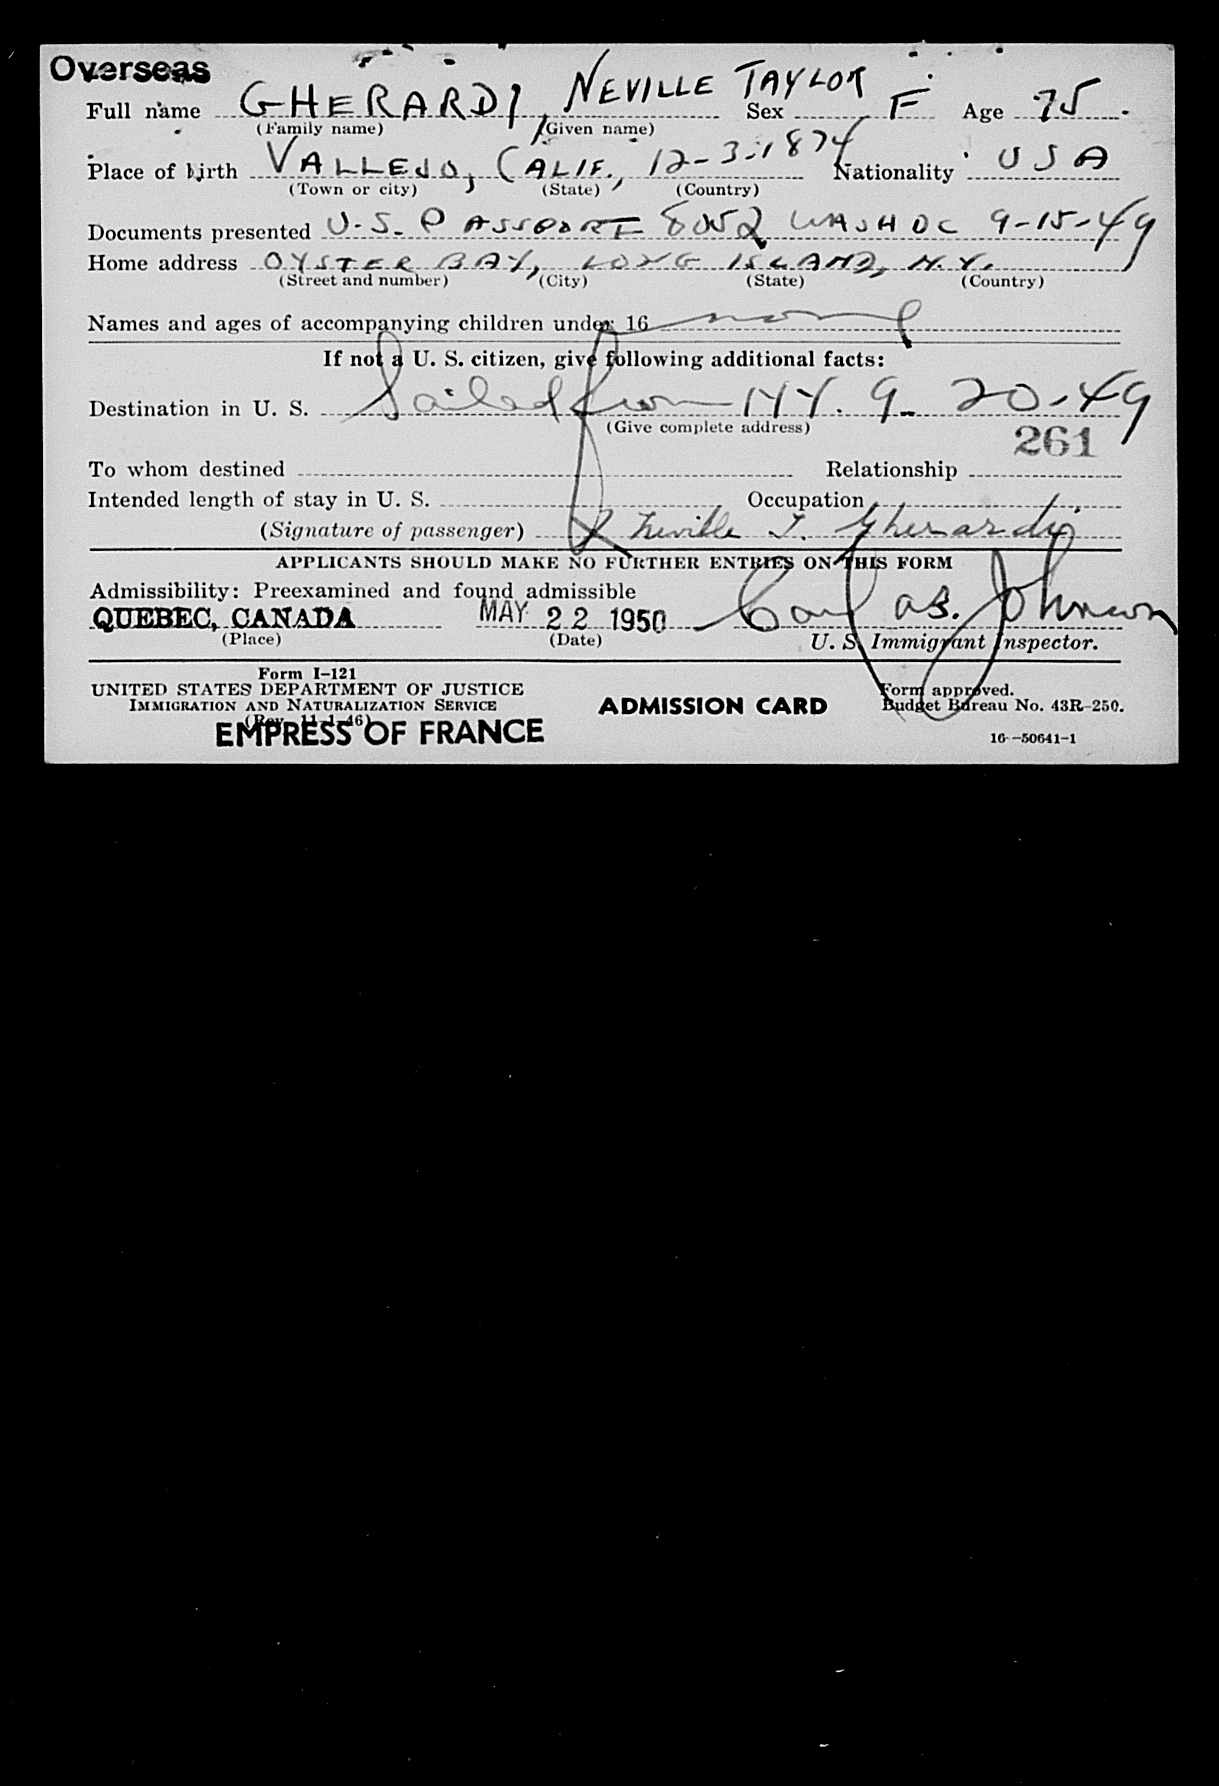 Overseas
Full name GHERARDI, NEVILLE TAYLOR Sex F Age 75.
(Family name) (Given name)
Place of birth VALLEJO, CALIF. 12-3-1874 Nationality USA
(Town or city) (State) (Country)
Documents presented U.S. PASSPORT 8052 WASH DC 9-15-49
Home address OYSTER BAY, LONG ISLAND, N.Y.
(Street and number) (City) (State) (Country)
Names and ages of accompanying children under 16 none
If not a U. S. citizen, give following additional facts:
Destination in U. S. Sailed from NY. 9-20-49
(Give complete address)
261
To whom destined Relationship
Intended length of stay in U. S. Occupation
(Signature of passenger) Neville T. Gherardi
APPLICANTS SHOULD MAKE NO FURTHER ENTRIES ON THIS FORM
Admissibility: Preexamined and found admissible
QUEBEC, CANADA MAY 22 1950 B. Johnson
(Place) (Date) U. S. Immigrant Inspector.
Form I-121
UNITED STATES DEPARTMENT OF JUSTICE
IMMIGRATION AND NATURALIZATION SERVICE
(Rev. 11-1-46)
ADMISSION CARD
Form approved.
Budget Bureau No. 43R-250.
EMPRESS OF FRANCE
16—50641-1